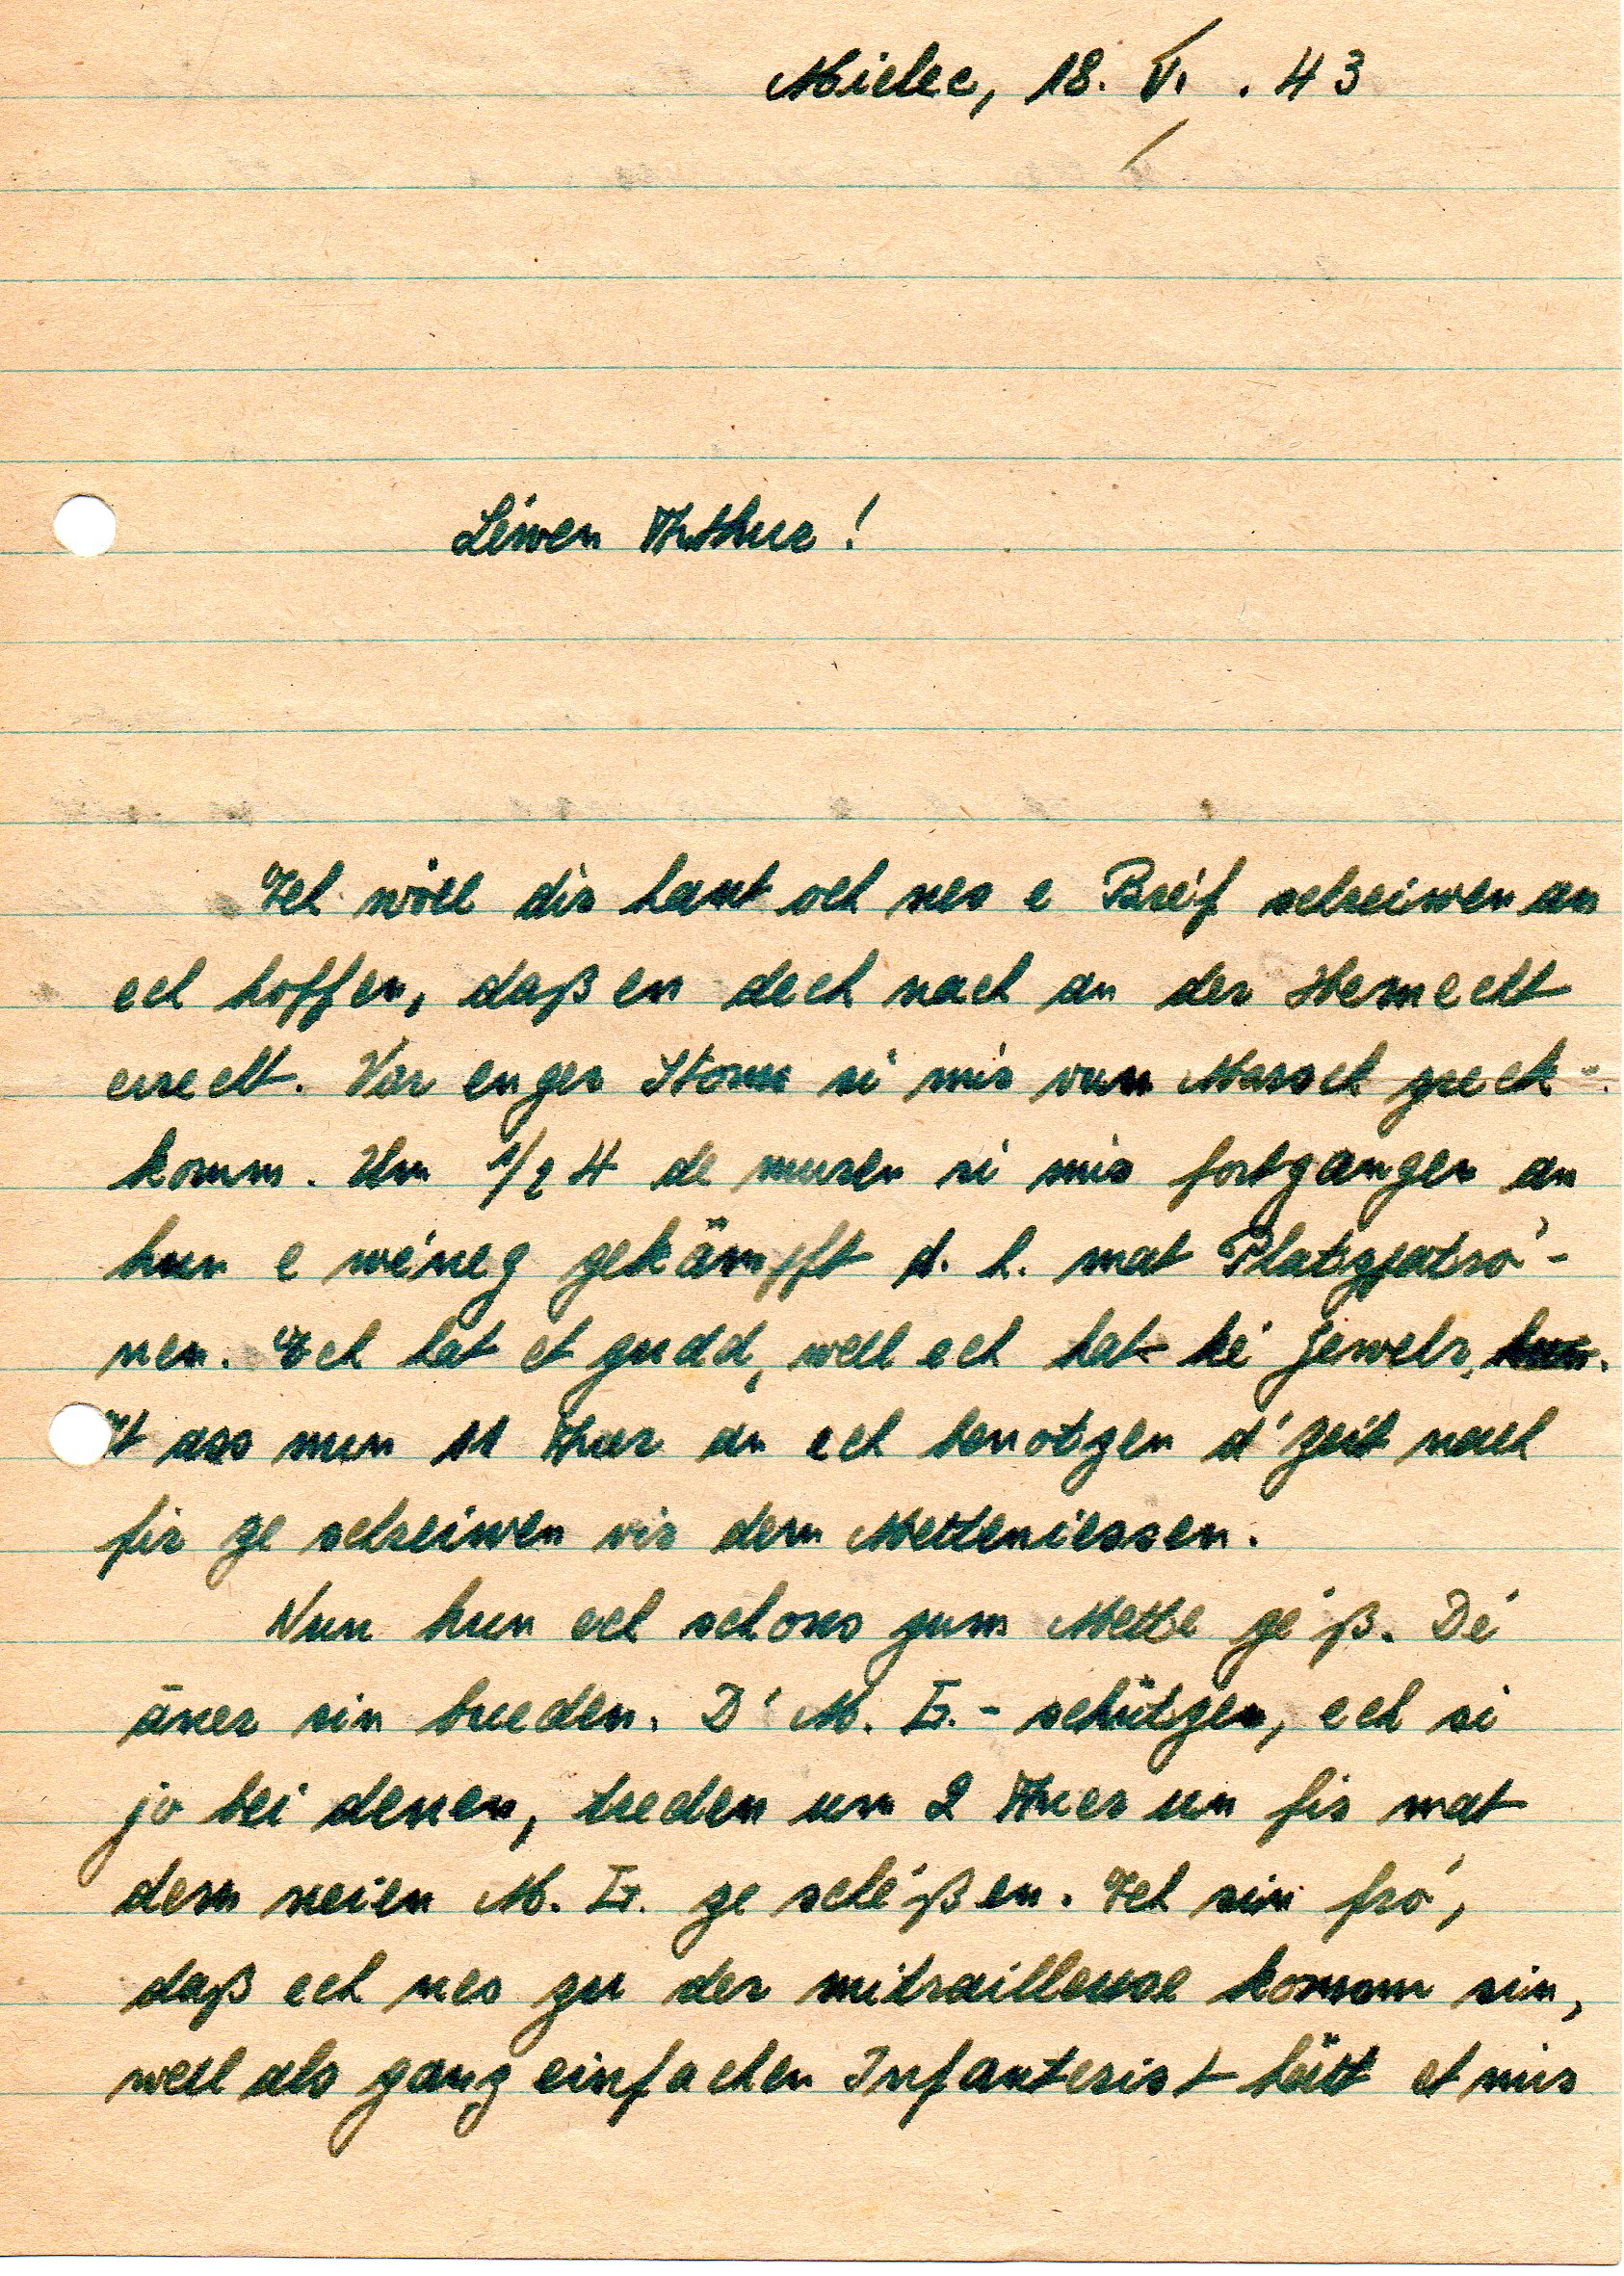 Mielec, 18. VI. . 43
Léiwen Arthur!
Ech wöll dir haut och nes e Bréif schreiwen an
ech hoffen, daß en dech nach an der Hemecht
erreecht. Var enger Stonn si mir vum Marsch zreck-
komm. Um 1/2 4 de muren si mir fortgangen an
hun e wéneg gekämpft d. h. mat Platzpatró-
nen. Ech hat et gudd, well ech hat ké Gewehr.
Et ass nun 11 Auer an ech benotzen d'Zeit nach
fir ze schreiwen vir dem Metteniessen.
Nun hun ech schons zum Mette géß. Dé
äner sin brueden. D' M. G.-schützen, ech si
jo bei denen, trieden um 2 Auer un fir mat
dem neien M. G. ze schéßen. Ech sin fró,
daß ech nes zu der mitrailleuse komm sin,
well als ganz einfachen Infanterist hätt et mir